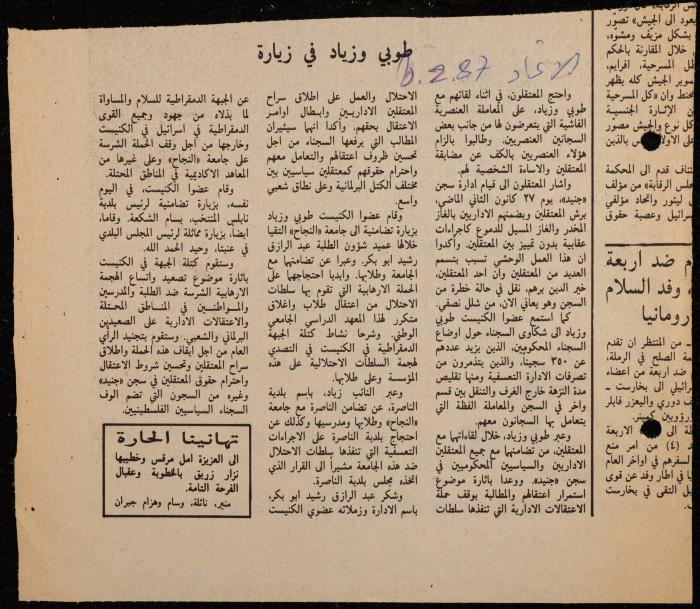 طوبي وزياد في زيارة
الاتحاد 6.2.87
واحتج المعتقلون، في اثناء لقائهم مع
طوبي وزياد، على المعاملة العنصرية
الفاشية التي يتعرضون لها من جانب بعض
السجانين العنصريين. وطالبوا بالزام
هؤلاء العنصريين بالكف عن مضايقة
المعتقلين والاساءة الشخصية لهم.
واشار المعتقلون الى قيام ادارة سجن
«جنيد»، يوم ٢٧ كانون الثاني الماضي،
برش المعتقلين وبضمنهم الاداريين بالغاز
المخدر والغاز المسيل للدموع كاجراءات
عقابية بدون تمييز بين المعتقلين. وأكدوا
ان هذا العمل الوحشي تسبب بتسمم
العديد من المعتقلين وان احد المعتقلين،
خير الدين برهم، نقل في حالة خطرة من
السجن وهو يعاني الان، من شلل نصفي.
كما استمع عضوا الكنيست طوبي
وزياد الى شكاوى السجناء حول اوضاع
السجناء المحكومين، الذين يزيد عددهم
عن ٣٥٠ سجيناً، والذين يتذمرون من
تصرفات الادارة التعسفية ومنها تقليص
مدة النزهة خارج الغرف والتنقل بين قسم
واخر في السجن والمعاملة الفظة التي
يتعامل بها السجانون معهم.
وعبر طوبي وزياد، خلال لقاءاتهما مع
المعتقلين، من تضامنهما مع جميع
الاداريين والسياسيين المحكوميين في
سجن «جنيد». ووعدا باثارة موضوع
استمرار اعتقالهم والمطالبة بوقف حملة
الاعتقالات الادارية التي تنفذها سلطات
الاحتلال والعمل على اطلاق سراح
المعتقلين الاداريين وابطال اوامر
الاعتقال بحقهم. وأكدا انهما سيثيران
المطالب التي يرفعها السجناء من اجل
تحسين ظروف اعتقالهم والتعامل معهم
واحترام حقوقهم كمعتقلين سياسيين بين
مختلف الكتل البرلمانية وعلى نطاق شعبي
واسع.
وقام عضوا الكنيست طوبي وزياد
بزيارة تضامنية الى جامعة «النجاح» التقيا
خلالها عميد شؤون الطلبة عبد الرازق
رشيد ابو بكر. وعبرا عن تضامنهما مع
الجامعة وطلابها. وابديا احتجاجهما على
الحملة الارهابية التي تقوم بها سلطات
الاحتلال من اعتقال طلاب واغلاق
متكرر لهذا المعهد الدراسي الجامعي
الوطني. وشرحا نشاط كتلة الجبهة
الدمقراطية في الكنيست في التصدي
لهجمة السلطات الاحتلالية على هذه
المؤسسة وعلى طلابها.
وعبر النائب زياد، باسم بلدية
الناصرة، عن تضامن الناصرة مع جامعة
«النجاح» وطلابها ومدرسيها وكذلك عن
احتجاج بلدية الناصرة على الاجراءات
التعسفية التي تنفذها سلطات الاحتلال
ضد هذه الجامعة مشيراً الى القرار الذي
اتخذه مجلس بلدية الناصرة.
وشكر عبد الرازق رشيد ابو بكر،
باسم الادارة وزملائه عضوي الكنيست
عن الجبهة الدمقراطية للسلام والمساواة
لما بذلاه من جهود وجميع القوى
الدمقراطية في اسرائيل في الكنيست
وخارجها من أجل وقف الحملة الشرسة
على جامعة «النجاح» وعلى غيرها من
المعاهد الاكاديمية في المناطق المحتلة.
وقام عضوا الكنيست، في اليوم
نفسه، بزيارة تضامنية لرئيس بلدية
نابلس المنتخب، بسام الشكعة. وقاما،
ايضا، بزيارة مماثلة لرئيس المجلس البلدي
في عنبتا، وحيد الحمد الله.
وستقوم كتلة الجبهة في الكنيست
باثارة موضوع تصعيد واتساع الهجمة
الارهابية الشرسة ضد الطلبة والمدرسين
والمـواطنـين في المنـاطق المحتـلة
والاعتقالات الادارية على الصعيدين
البرلماني والشعبي. وستقوم بتجنيد الرأي
العام من اجل ايقاف هذه الحملة واطلاق
سراح المعتقلين وتحسين شروط الاعتقال
واحترام حقوق المعتقلين في سجن «جنيد»
وغيره من السجون التي تضم الوف
السجناء السياسيين الفلسطينيين.
تهانينا الحارة
الى العزيزة امل مرقس وخطيبها
نزار زريق بالخطوبة وعقبال
الفرحة التامة.
منير، نائلة، وسام وهزام جبران
يعود الى الجيش» تصوّر
بشكل مزيف ومشوه،
خلال المقارنة بالحكم
طل المسرحية، افرايم،
صوير الجيش كله يظهر
منحط وان «كل المسرحية
من الاثارة الجنسية
كل نوع والجيش مصوّر
على الاولاد بالذين
قدم الى المحكمة
مجلس الرقابة» من مؤلف
ليئور واتحاد مؤلفي
اسرائيل وعصبة حقوق
ضد اربعة
وفد السلام
رومانيا
من المنتظر ان تقدم
محكمة الصلح في الرملة،
ضد اربعة من اعضاء
الى بخارست
دوري واليعزر فايلر
الاربعة
(٤) من امر منع
لسفرهم في اواخر العام
في اطار وفد عن قوى
التقى في بخارست